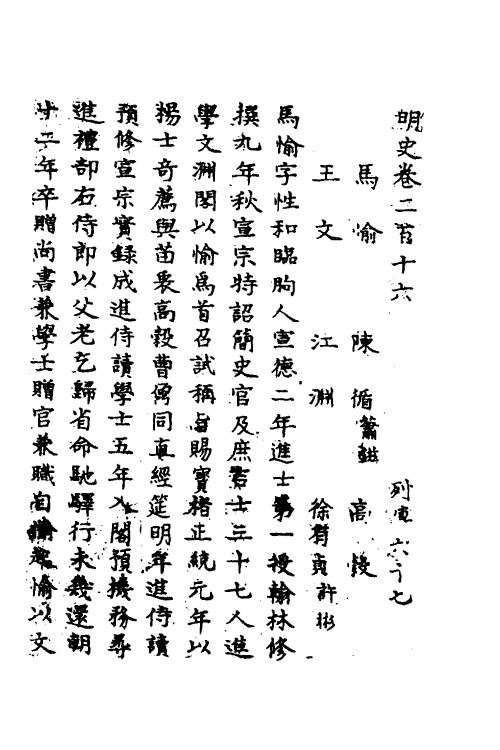 明史卷二百十六 列傳六十七
馬愉 陳循蕭鎡 高穀
王文 江淵 徐有貞許彬
馬愉字性和臨朐人宣德二年進士第一授翰林修
撰九年秋宣宗特詔簡史官及庶吉士三十七人進
學文淵閣以愉為首召試稱旨賜寶楮正統元年以
楊士奇薦與苗衷高穀曹鼐同直經筵明年進侍讀
預修宣宗實録成進侍讀學士五年入閣預機務尋
進禮部右侍郎以父老乞歸省命馳驛行未幾還朝
十二年卒贈尚書兼學士贈官兼職自愉起愉以文